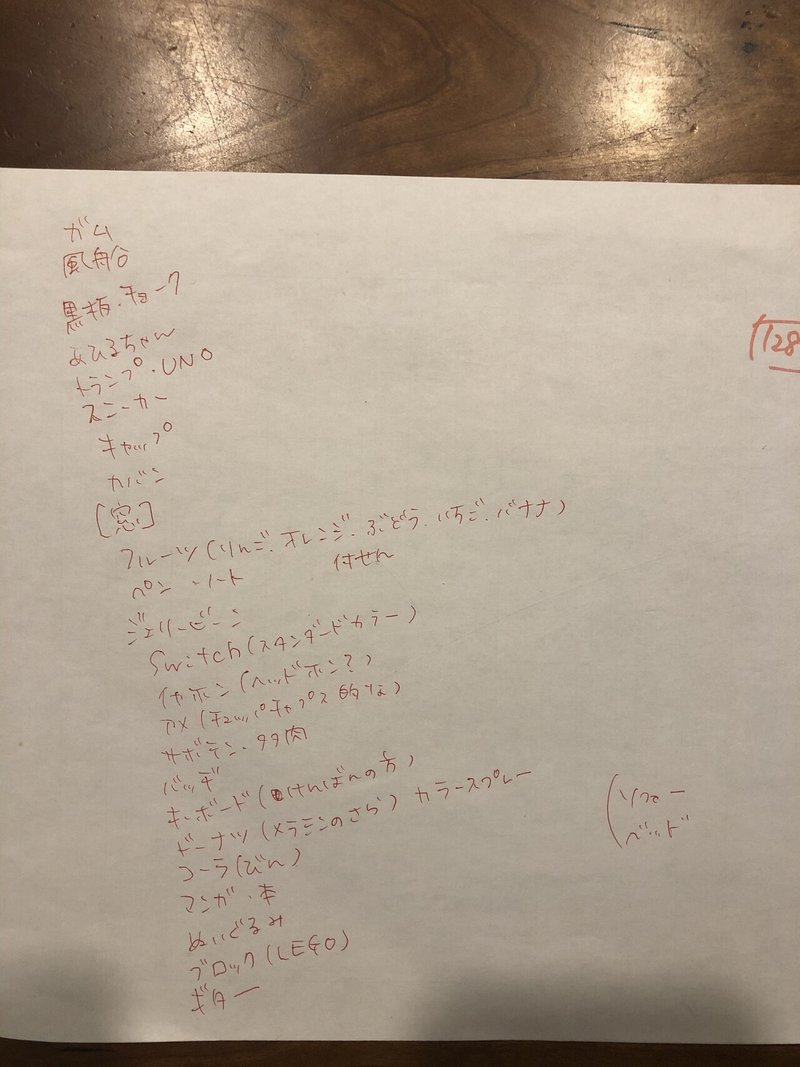 ガム
風船
黒板・チョーク
あひるちゃん
トランプ・UNO
スニーカー
キャップ
カバン
[窓]
フルーツ(りんご.オレンジ.ぶどう.いちご.バナナ)
ペン・ノート 付せん
ジェリービーン
Switch(スタンダードカラー)
イヤホン(ヘッドホン?)
アメ(チュッパチャプス的な)
サボテン・多肉
バッヂ
キーボード(けんばんの方)
ドーナツ(メラミンのさら) カラースプレー
コーラ(びん)
マンガ・本
ぬいぐるみ
ブロック(LEGO)
ギター
128
(ソファー
ベッド